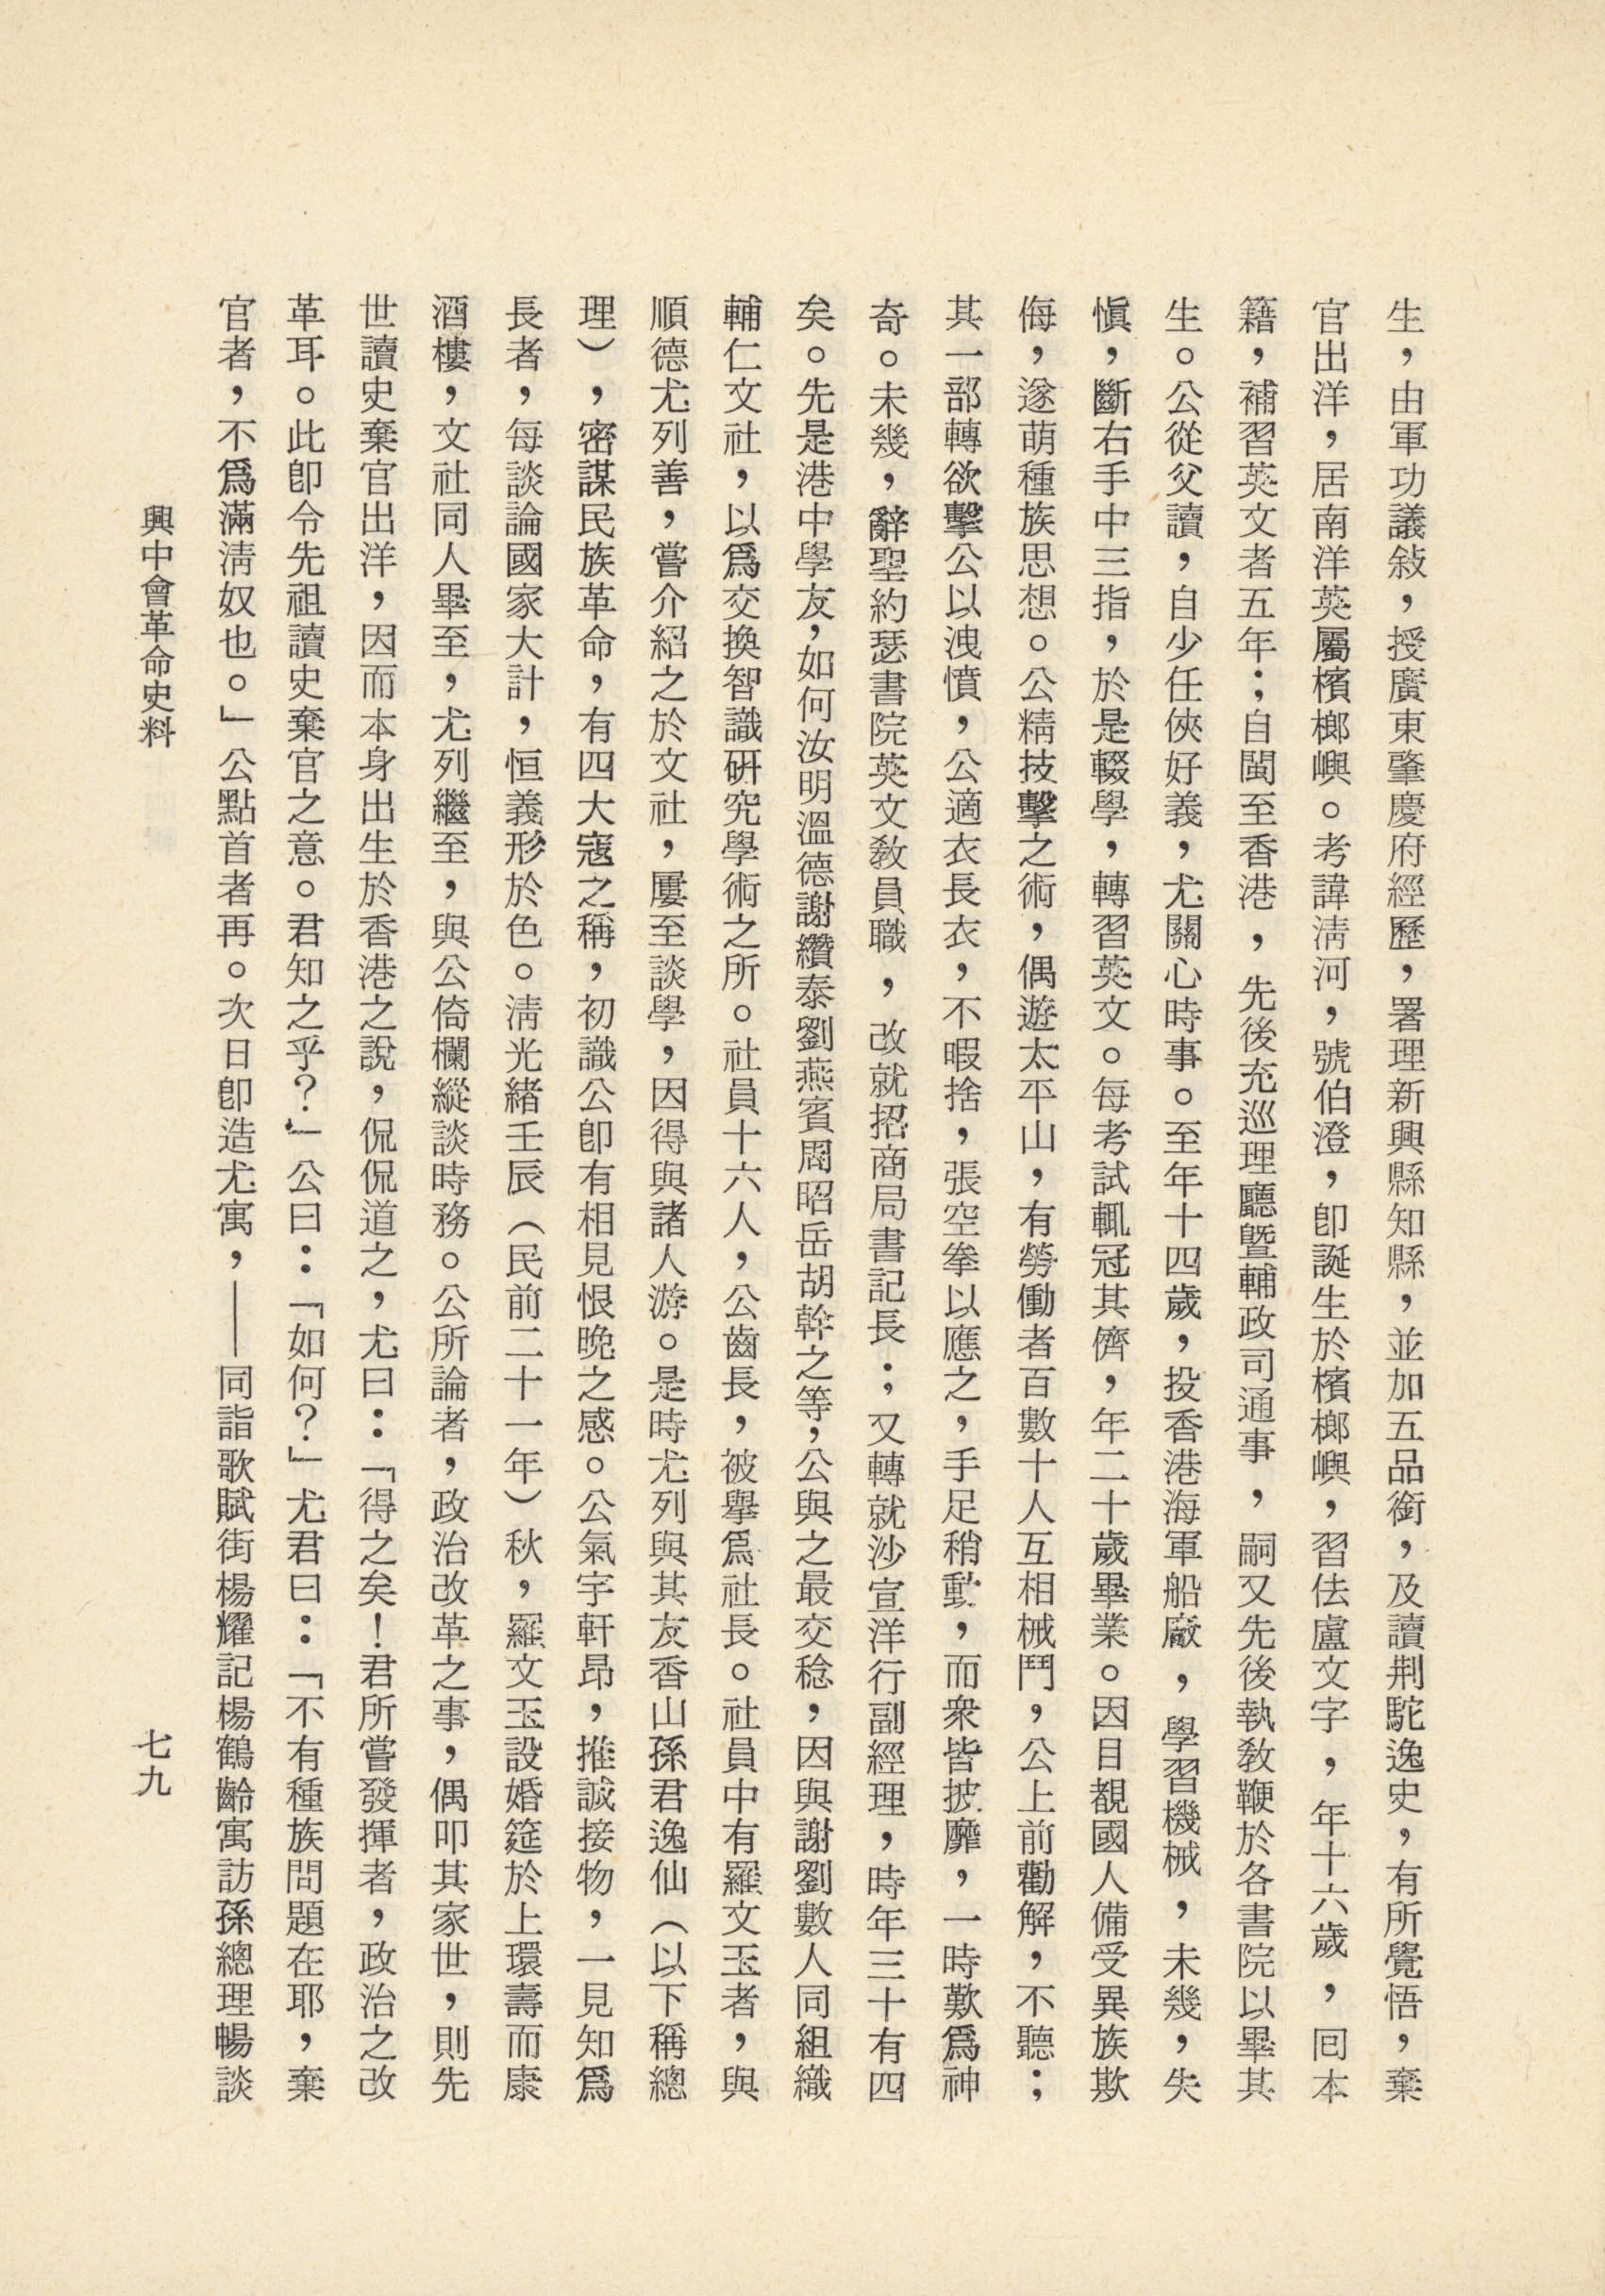 生，由軍功議敍，授廣東肇慶府經歷，署理新興縣知縣，並加五品銜，及讀荆駝逸史，有所覺悟，棄
官出洋，居南洋英屬檳榔嶼。考諱清河，號伯澄，卽誕生於檳榔嶼，習佉盧文字，年十六歲，囘本
籍，補習英文者五年；自閩至香港，先後充巡理廳暨輔政司通事，嗣又先後執敎鞭於各書院以畢其
生。公從父讀，自少任俠好義，尤關心時事。至年十四歲，投香港海軍船廠，學習機械，未幾，失
愼，斷右手中三指，於是輟學，轉習英文。每考試輒冠其儕，年二十歲畢業。因目覩國人備受異族欺
侮，遂萌種族思想。公精技擊之術，偶遊太平山，有勞働者百數十人互相械鬥，公上前勸解，不聽；
其一部轉欲擊公以洩憤，公適衣長衣，不暇捨，張空拳以應之，手足稍動，而衆皆披靡，一時歎爲神
奇。未幾，辭聖約瑟書院英文敎員職，改就招商局書記長；又轉就沙宣洋行副經理，時年三十有四
矣。先是港中學友，如何汝明溫德謝纘泰劉燕賓周昭岳胡幹之等，公與之最交稔，因與謝劉數人同組織
輔仁文社，以爲交換智識硏究學術之所。社員十六人，公齒長，被擧爲社長。社員中有羅文玉者，與
順德尤列善，嘗介紹之於文社，屢至談學，因得與諸人游。是時尤列與其友香山孫君逸仙（以下稱總
理），密謀民族革命，有四大寇之稱，初識公卽有相見恨晚之感。公氣宇軒昂，推誠接物，一見知爲
長者，每談論國家大計，恒義形於色。淸光緒壬辰（民前二十一年）秋，羅文玉設婚筵於上環壽而康
酒樓，文社同人畢至，尤列繼至，與公倚欄縱談時務。公所論者，政治改革之事，偶叩其家世，則先
世讀史棄官出洋，因而本身出生於香港之說，侃侃道之，尤曰：「得之矣！君所嘗發揮者，政治之改
革耳。此卽令先祖讀史棄官之意。君知之乎？」公曰：「如何？」尤君曰：「不有種族問題在耶，棄
官者，不爲滿淸奴也。」公點首者再。次日卽造尤寓，——同詣歌賦街楊耀記楊鶴齡寓訪孫總理暢談
興中會革命史料
七九